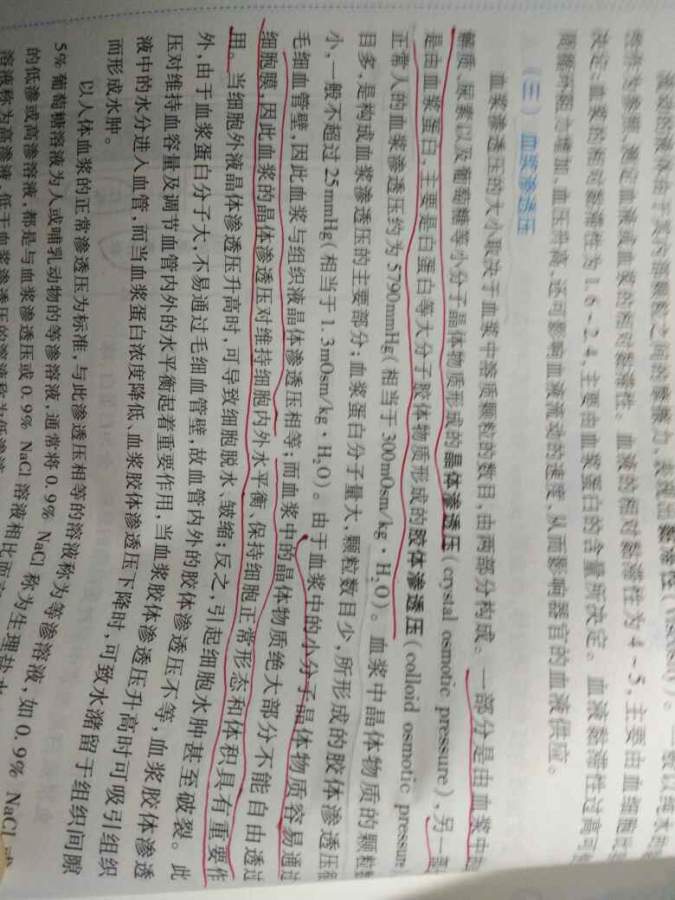 流动的液体由于其内部颗粒之间的摩擦力,表现出黏滞性
测定血液或血浆的相对黏滞性。血液的相对黏滞性为 4~5,主要由血细胞
决定;血浆的相对黏滞性为 1.6~2.4,主要由血浆蛋白的含量所决定。血液黏滞性过高可
外阻力增加,血压升高,还可影响血液流动的速度,从而影响器官的血液供应。
(三) 血浆渗透压
血浆渗透压的大小取决于血浆中溶质颗粒的数目,由两部分构成。一部分是由血浆中的
解质、尿素以及葡萄糖等小分子晶体物质形成的晶体渗透压(crystal osmotic pressure),另一部
是由血浆蛋白,主要是白蛋白等大分子胶体物质形成的胶体渗透压(colloid osmotic pressure
正常人的血浆渗透压约为 5790mmHg(相当于 300mOsm/kg·H₂O)。血浆中晶体物质的颗粒
目多,是构成血浆渗透压的主要部分;血浆蛋白分子量大,颗粒数目少,所形成的胶体渗透压
小,一般不超过 25mmHg(相当于 1.3mOsm/kg·H₂O)。由于血浆中的小分子晶体物质容易通过
毛细血管壁,因此血浆与组织液晶体渗透压相等;而血浆中的晶体物质绝大部分不能自由透过
细胞膜,因此血浆的晶体渗透压对维持细胞内外水平衡、保持细胞正常形态和体积具有重要作
用。当细胞外液晶体渗透压升高时,可导致细胞脱水、皱缩;反之,引起细胞水肿甚至破裂。此
外,由于血浆蛋白分子大,不易通过毛细血管壁,故血管内外的胶体渗透压不等,血浆胶体渗透
压对维持血容量及调节血管内外的水平衡起着重要作用,当血浆胶体渗透压升高时可吸引组织
液中的水分进入血管,而当血浆蛋白浓度降低、血浆胶体渗透压下降时,可致水潴留于组织间隙
而形成水肿。
以人体血浆的正常渗透压为标准,与此渗透压相等的溶液称为等渗溶液,如 0.9% NaCl
5% 葡萄糖溶液为人或哺乳动物的等渗溶液,通常将 0.9% NaCl 称为生理盐水
的低渗或高渗溶液,都是与血浆渗透压或 0.9% NaCl 溶液相比而
溶液称为高渗液,低于血浆渗透压的溶液称为低渗液